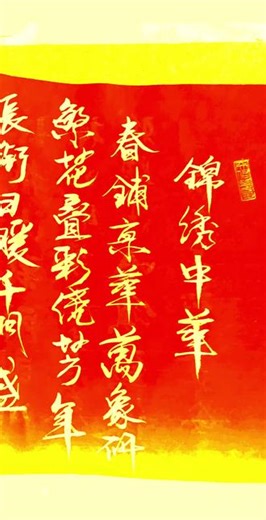 錦绣中華
春鋪京華萬象妍
繁花叠彩绕芳年
長街日暖千門盛